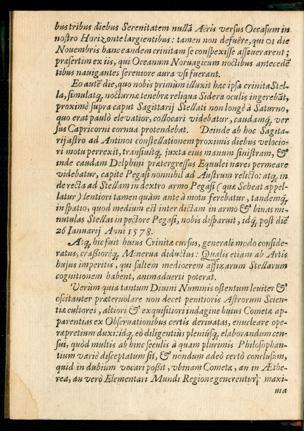 bus tribus diebus Serenitatem nullâ Aëris versus Occasum in
nostro Horizonte largientibus: tamen non defuêre, qui 01 die
Nouembris hanc eandem crinitam se conspexisse asseuerarent;
præsertim ex iis, qui Oceanum Noruagicum noctibus antecedē
tibus nauigantes sereniore aura vsi fuerant.
Eo autē die, quo nobis primum illuxit hæc ipsa crinita Stel-
la, simulatq; nocturnæ tenebræ reliqua Sidera oculis ingerebāt,
proximè supra caput Sagittarij Stellati non longè à Saturno,
quo erat paulò eleuatior, collocari videbatur, caudamq; ver
sus Capricorni cornua protendebat. Deinde ab hoc Sagita-
rij astro ad Antinoi constellationem proximis diebus velocio-
ri motu perrexit, transiuitq; juxta eius manum sinistram, &
inde caudam Delphini prætergressus Equulei nares permeare
videbatur, capite Pegasi nonnihil ad Austrum relicto: atq; in
de recta ad Stellam in dextro armo Pegasi (quæ Scheat appel-
latur) lentiori tamen quàm antè à motu ferebatur, tandemq;
in spatio, quod medium est inter dictam in armo & binas mi-
nutulas Stellas in pectore Pegasi, nobis disparuit, idq; post diē
26 Ianuarij Anni 1578.
Atq; hic fuit huius Crinitæ cursus, generali modo conside-
ratus, crassiorèq; Minerua diductus: Qualis etiam ab Artis
hujus imperitis, qui saltem mediocrem affixarum Stellarum
cognitionem habent, animaduerti poterat.
Verùm quia tantum Diuini Numinis ostentum leuiter &
oscitanter præteruolare non decet penitioris Astrorum Scien-
tiæ cultores, altiori & exquisitiori indagine huius Cometæ ap-
parentias ex Obseruationibus certis deriuatas, enucleare ope-
ræpretium duxi: idq; eò diligentiùs pleniùsq; elaborandum cen-
sui, quòd multis ab hinc seculis à quam plurimis Philosophan-
tium variè disceptatum sit, & nondum adeò certò conclusum,
quid in dubium vocari possit, vtrnam Cometæ, an in Æthe-
rea, an verò Elementari Mundi Regione generentur; maxi-
ma